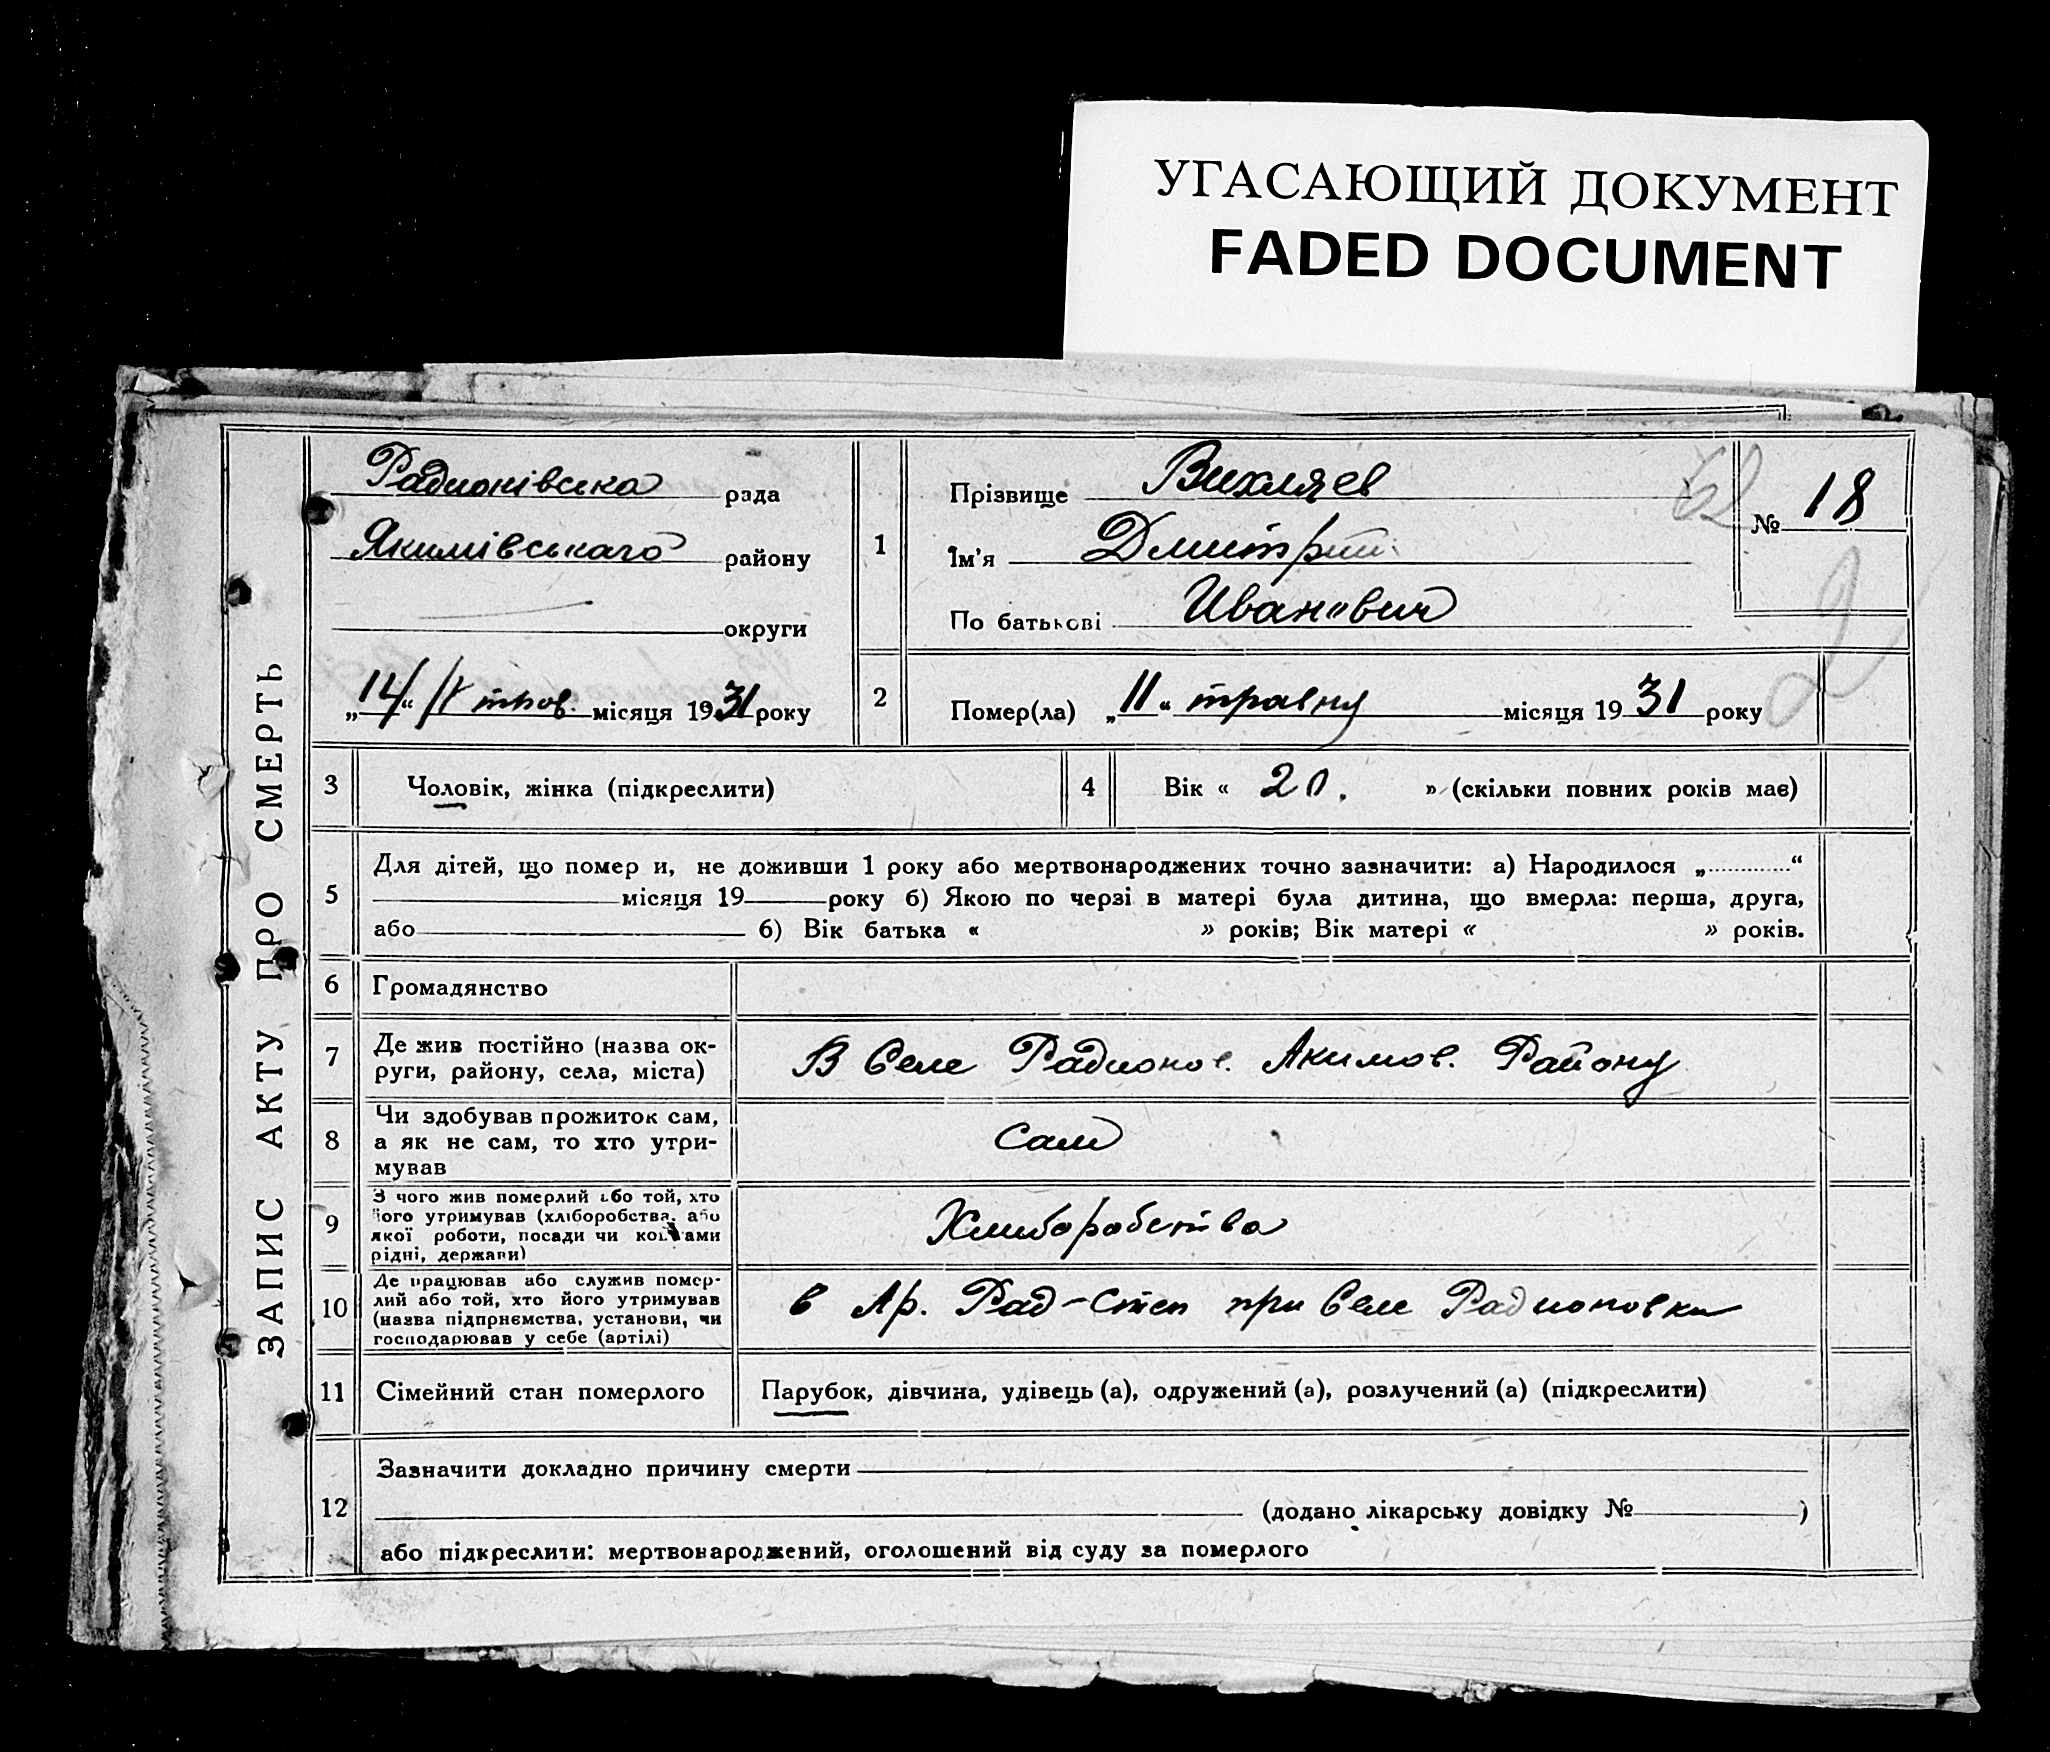 УГАСАЮЩИЙ ДОКУМЕНТ
FADED DOCUMENT
ЗАПИС АКТУ ПРО СМЕРТЬ
Радионівська рада
Якимівського району
округи
„14“ тров. місяця 1931 року
1
Прізвище Вихляев
Ім'я Дмитрий
По батькові Иванович
62
№ 18
2
2
Помер(ла) „11“ травну місяця 1931 року
3
Чоловік, жінка (підкреслити)
4
Вік « 20. » (скільки повних років має)
5
Для дітей, що помер и, не доживши 1 року або мертвонароджених точно зазначити: а) Народилося „............“
місяця 19 року б) Якою по черзі в матері була дитина, що вмерла: перша, друга,
або б) Вік батька « » років; Вік матері « » років.
6
Громадянство
7
Де жив постійно (назва ок-
руги, району, села, міста)
В Селе Радионов. Акимов. Району
8
Чи здобував прожиток сам,
а як не сам, то хто утри-
мував
Сам
9
З чого жив померлий або той, хто
його утримував (хліборобства, або
якої роботи, посади чи коштами
рідні, держави)
Хлиборобства
10
Де працював або служив помер-
лий або той, хто його утримував
(назва підприємства, установи, чи
господарював у себе (артілі)
в Ар. Рад-Степ при Селе Радионовки
11
Сімейний стан померлого
Парубок, дівчина, удівець (а), одружений (а), розлучений (а) (підкреслити)
12
Зазначити докладно причину смерти
(додано лікарську довідку № )
або підкреслити: мертвонароджений, оголошений від суду за померлого